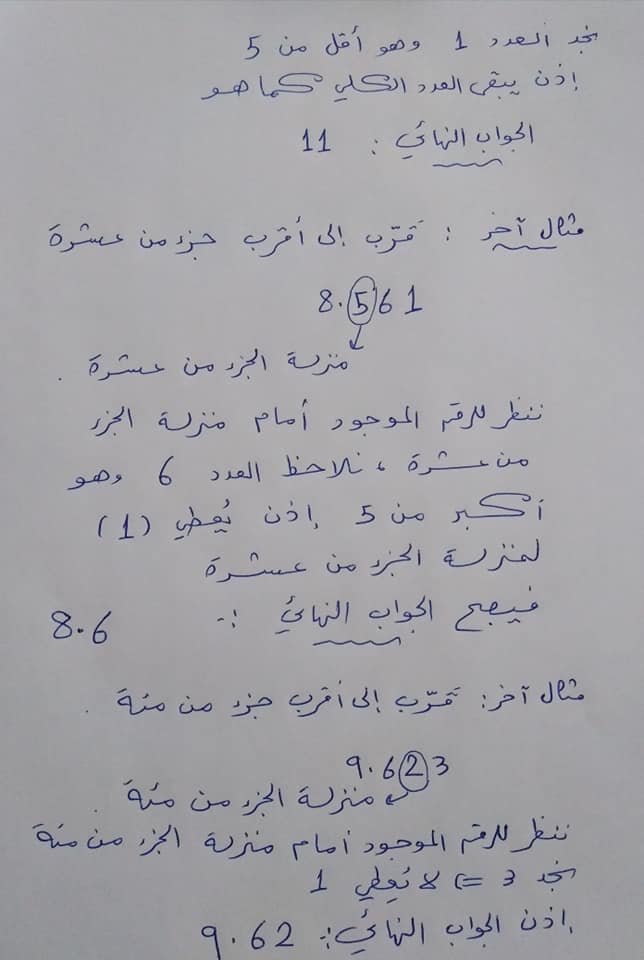 نجد العدد 1 وهو أقل من 5
إذن يبقى العدد الكلي كما هو
الجواب النهائي : 11
مثال آخر : قرّب إلى أقرب جزء من عشرة
8.561
منزلة الجزء من عشرة .
ننظر للرقم الموجود أمام منزلة الجزء
من عشرة ، نلاحظ العدد 6 وهو
أكبر من 5 إذن يُعطي (1)
لمنزلة الجزء من عشرة
فيصبح الجواب النهائي :- 8.6
مثال آخر : قرّب إلى أقرب جزء من مئة .
9.623
منزلة الجزء من مئة .
ننظر للرقم الموجود أمام منزلة الجزء من مئة
نجد 3 => لا يُعطي 1
إذن الجواب النهائي :- 9.62